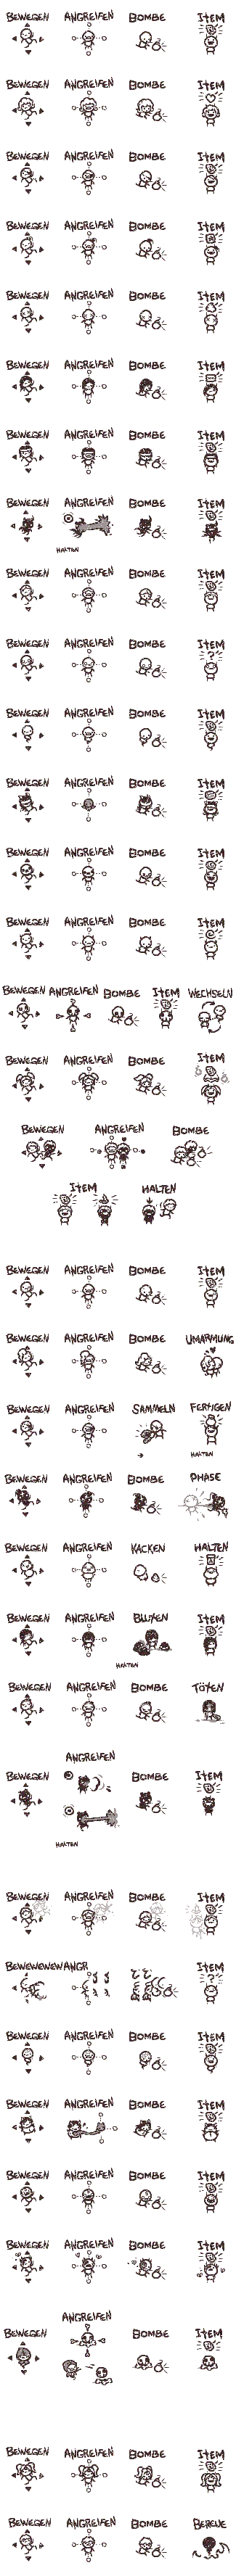 BEWEGEN ANGREIFEN BOMBE ITEM
BEWEGEN ANGREIFEN BOMBE ITEM
BEWEGEN ANGREIFEN BOMBE ITEM
BEWEGEN ANGREIFEN BOMBE ITEM
BEWEGEN ANGREIFEN BOMBE ITEM
BEWEGEN ANGREIFEN BOMBE ITEM
BEWEGEN ANGREIFEN BOMBE ITEM
BEWEGEN ANGREIFEN BOMBE ITEM
HALTEN
BEWEGEN ANGREIFEN BOMBE ITEM
BEWEGEN ANGREIFEN BOMBE ITEM
?
BEWEGEN ANGREIFEN BOMBE ITEM
BEWEGEN ANGREIFEN BOMBE ITEM
BEWEGEN ANGREIFEN BOMBE ITEM
BEWEGEN ANGREIFEN BOMBE ITEM
BEWEGEN ANGREIFEN BOMBE ITEM WECHSELN
BEWEGEN ANGREIFEN BOMBE ITEM
BEWEGEN ANGREIFEN BOMBE
ITEM HALTEN
BEWEGEN ANGREIFEN BOMBE ITEM
BEWEGEN ANGREIFEN BOMBE UMARMUNG
BEWEGEN ANGREIFEN SAMMELN FERTIGEN
HALTEN
BEWEGEN ANGREIFEN BOMBE PHASE
BEWEGEN ANGREIFEN KACKEN HALTEN
BEWEGEN ANGREIFEN BLUTEN ITEM
HALTEN
BEWEGEN ANGREIFEN BOMBE TÖTEN
ANGREIFEN
BEWEGEN BOMBE ITEM
HALTEN
BEWEGEN ANGREIFEN BOMBE ITEM
BEWEWEWEWANGR ITEM
?
BEWEGEN ANGREIFEN BOMBE ITEM
BEWEGEN ANGREIFEN BOMBE ITEM
BEWEGEN ANGREIFEN BOMBE ITEM
BEWEGEN ANGREIFEN BOMBE ITEM
ANGREIFEN
BEWEGEN BOMBE ITEM
BEWEGEN ANGREIFEN BOMBE ITEM
BEWEGEN ANGREIFEN BOMBE